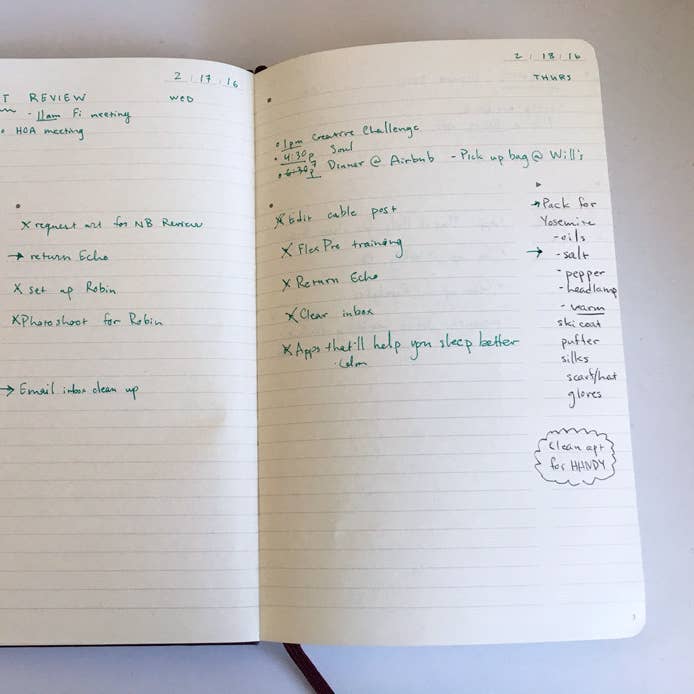 2 | 17 | 16
WED
T REVIEW
- 11am Fi meeting
• HOA meeting
•
X request art for NB Review
→ return Echo
X set up Robin
X Photoshoot for Robin
→ Email inbox clean up
2 | 18 | 16
THURS
• 1pm Creative Challenge
• 4:30p Soul
• 6:30 7p Dinner @ Airbnb - Pick up bag @ Will's
•
X Edit cable post
X FlexPro training
X Return Echo
X Clear inbox
X Apps that'll help you sleep better
· Calm
▶
→ Pack for
Yosemite
- oils
→ - salt
- pepper
- headlamp
- warm
ski coat
puffer
silks
scarf/hat
gloves
Clean apt
for HANDY
3